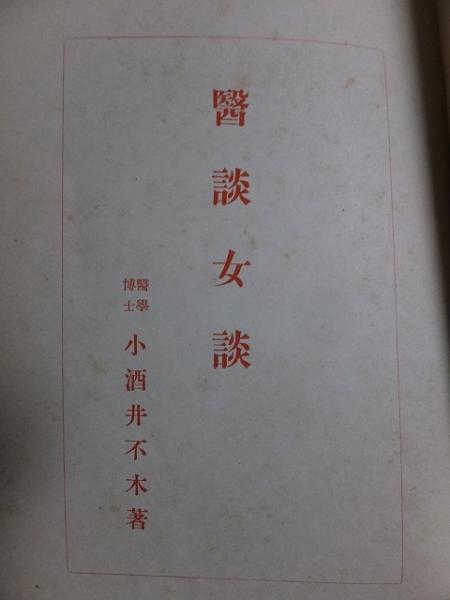 醫談女談
醫學博士 小酒井不木著